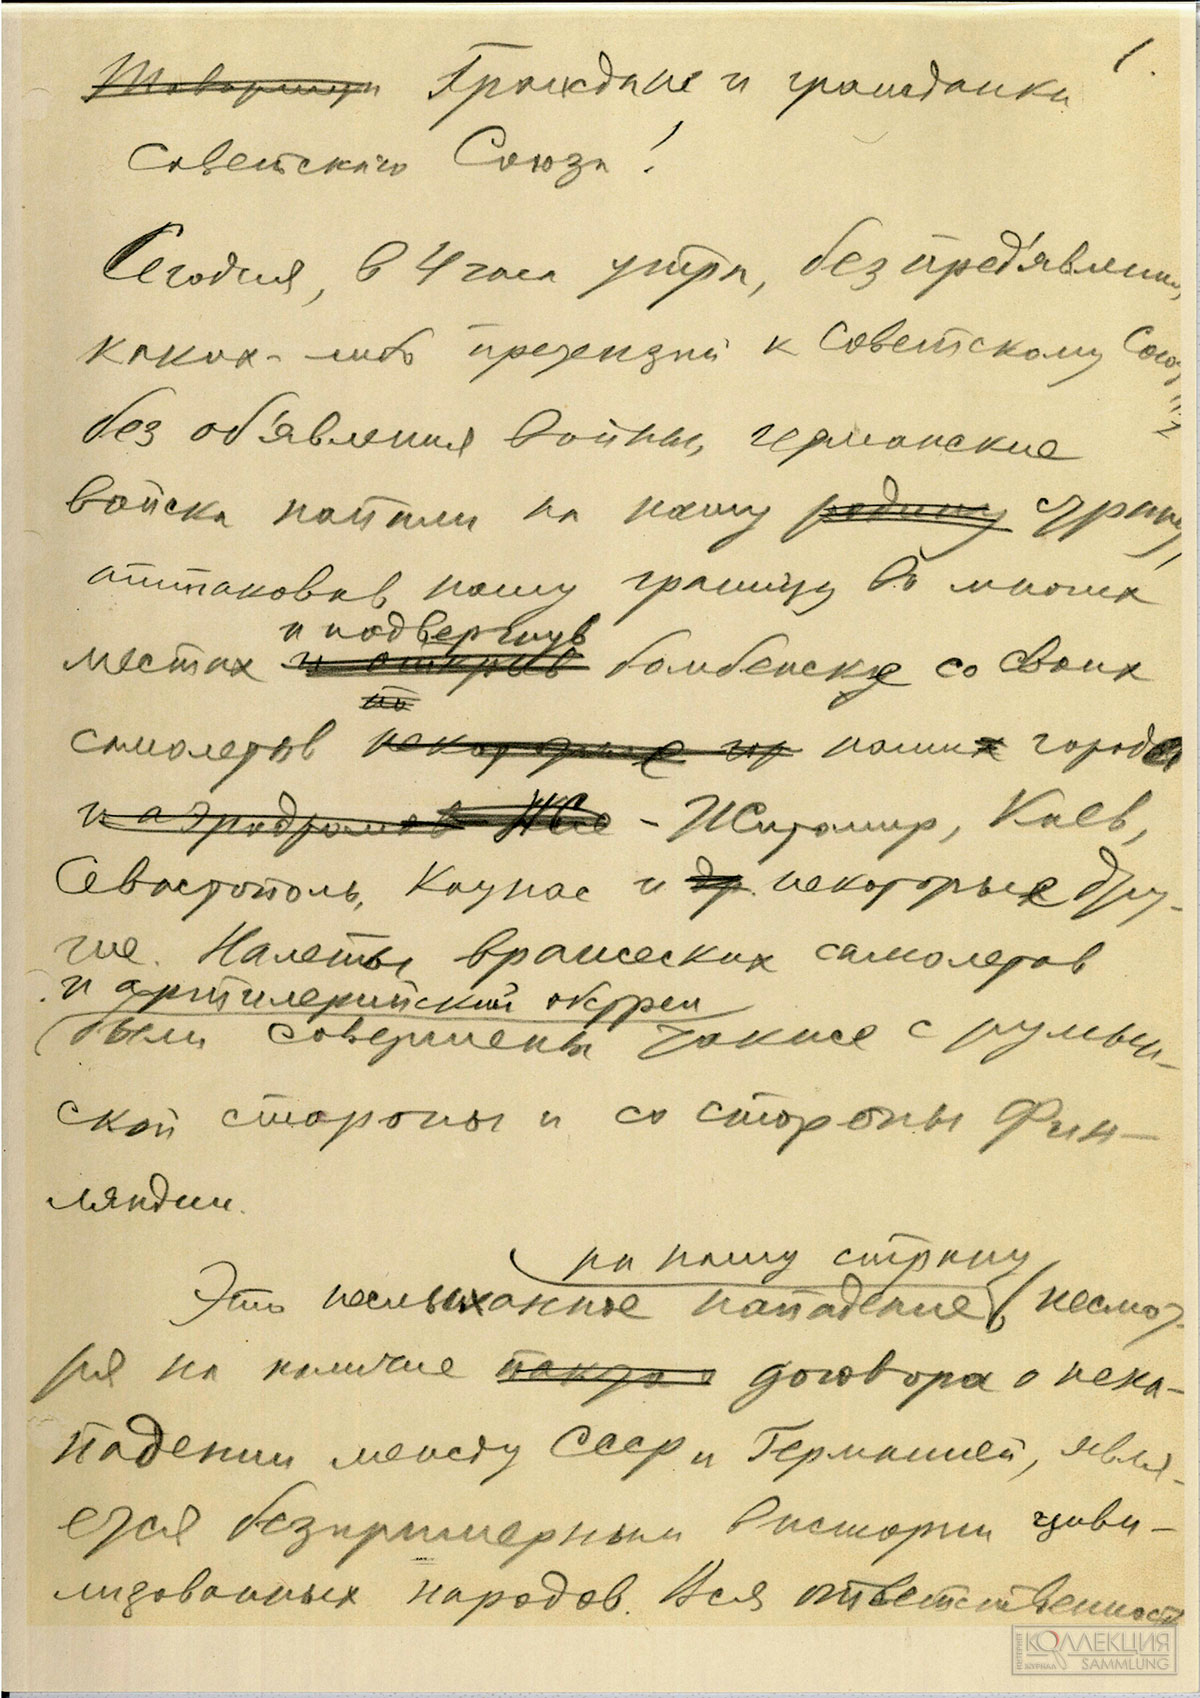 1.
Товарищи Граждане и гражданки
Советского Союза!
Сегодня, в 4 часа утра, без пред'явления
каких-либо претензий к Советскому Союзу,
без об'явления войны, германские
войска напали на нашу родину страну,
аттаковав нашу границу во многих
и подвергнув
местах и открыв бомбежке со своих
по
самолетов некоторые гор наших города
и аэродромов Жи - Житомир, Киев,
Севастополь, Каунас и др. некоторые дру-
гие. Налеты вражеских самолетов
и артиллерийский обстрел
были совершены также с румын-
ской стороны и со стороны Фин-
ляндии.
на нашу страну
Это неслыханное нападение, несмот-
ря на наличие пакта о договора о нена-
падении между СССР и Германией, явля-
ется безпримерным в истории циви-
лизованных народов. Вся ответственность
ИНТЕРНЕТ ЖУРНАЛ КОЛЛЕКЦИЯ
SAMMLUNG